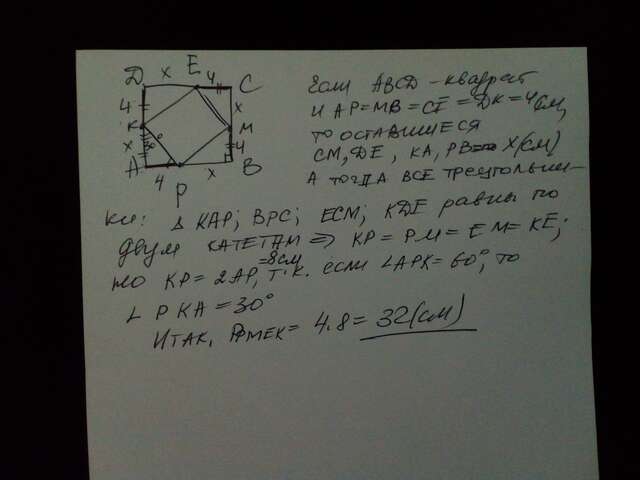 D x E 4 C
4 x
K M
x 30° 4
A B
4 P x
Если ABCD – квадрат
и AP=MB=CE=DK=4см,
то оставшиеся
CM, DE, KA, PB = x(см)
А тогда все треугольни-
ки: Δ KAP; BPC; ECM; KDE равны по
двум катетам => KP = PM = EM = KE;
но KP = 2AP, т.к. если ∠APK = 60°, то
=8см
∠ PKA = 30°
Итак, PPMEK = 4.8 = 32(см)